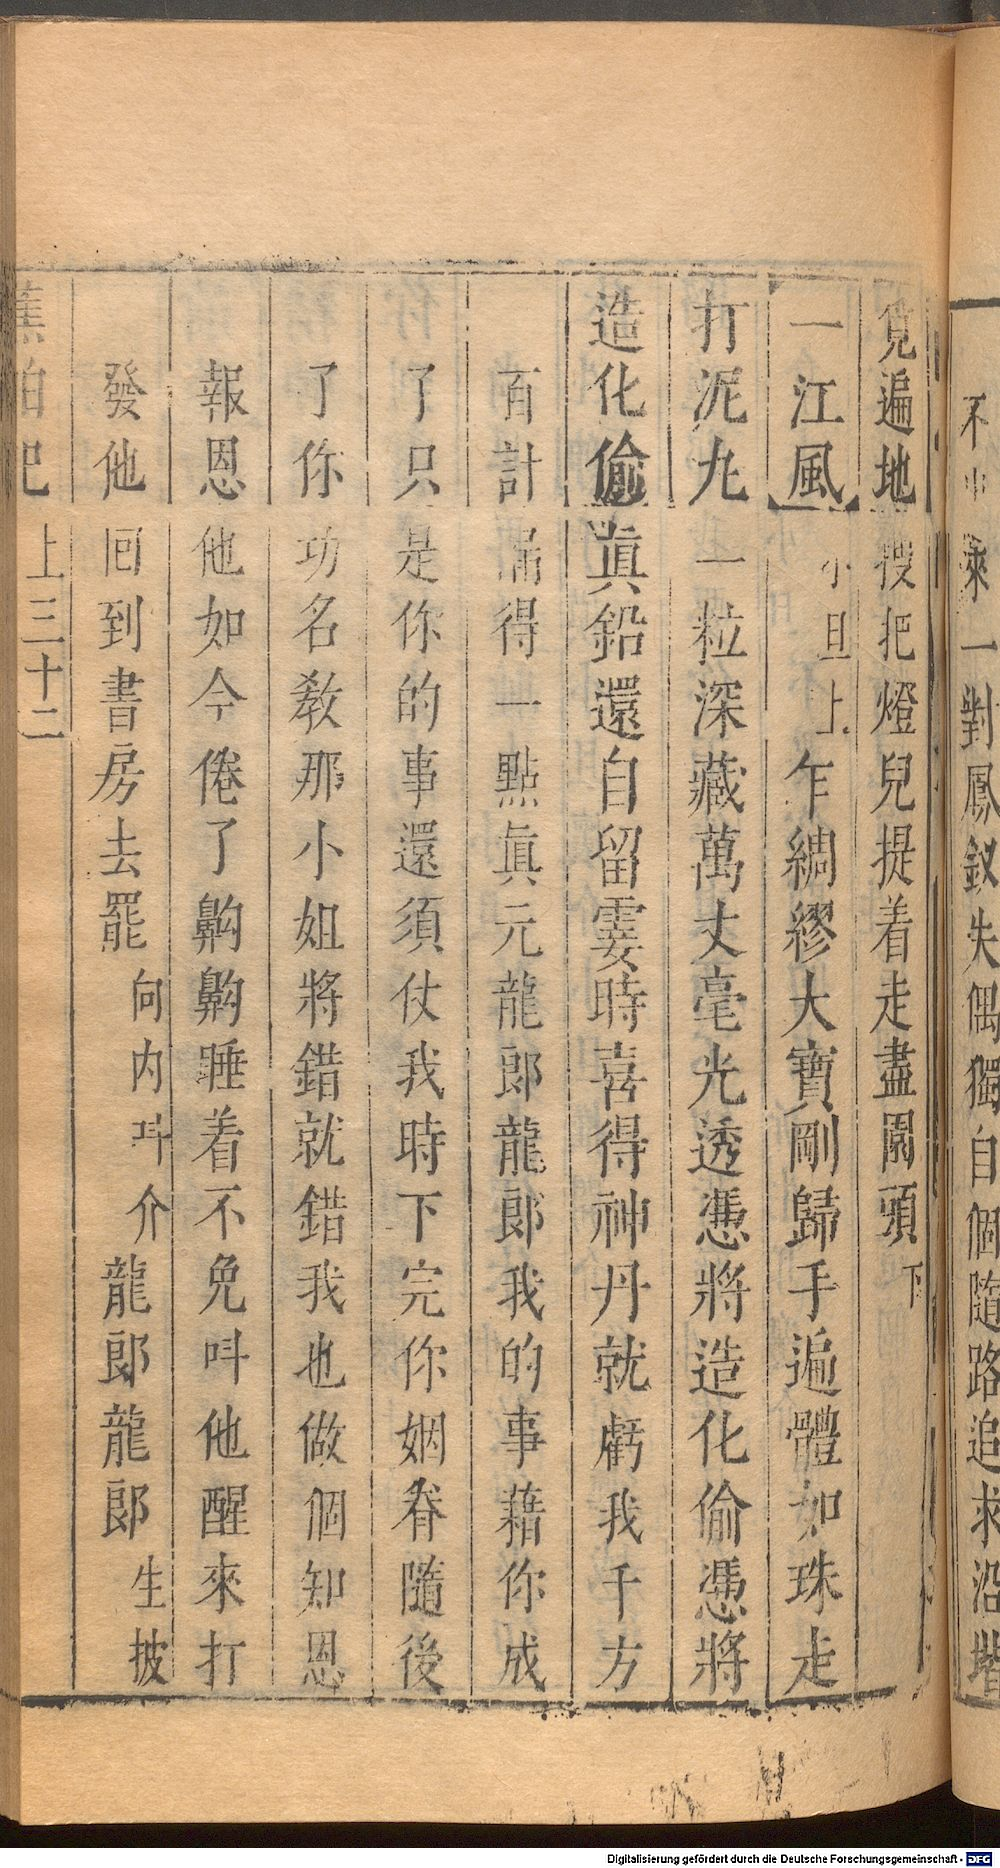 不 乘一對鳳釵失偶獨自個隨路追求沿堦
覓遍地搜把燈兒提着走盡園頭下
一江風小旦上乍綢繆大寶剛歸手遍體如珠走
打泥九一粒深藏萬丈毫光透憑將造化偷憑將
造化偷眞鉛還自留霎時喜得神丹就虧我千方
百計漏得一點眞元龍郎龍郎我的事藉你成
了只是你的事還須仗我時下完你姻眷隨後
了你功名敎那小姐將錯就錯我也做個知恩
報恩他如今倦了齁齁睡着不免呌他醒來打
發他囘到書房去罷向内呌介龍郎龍郎生披
蕉帕記 上三十二
Digitalisierung gefördert durch die Deutsche Forschungsgemeinschaft - DFG